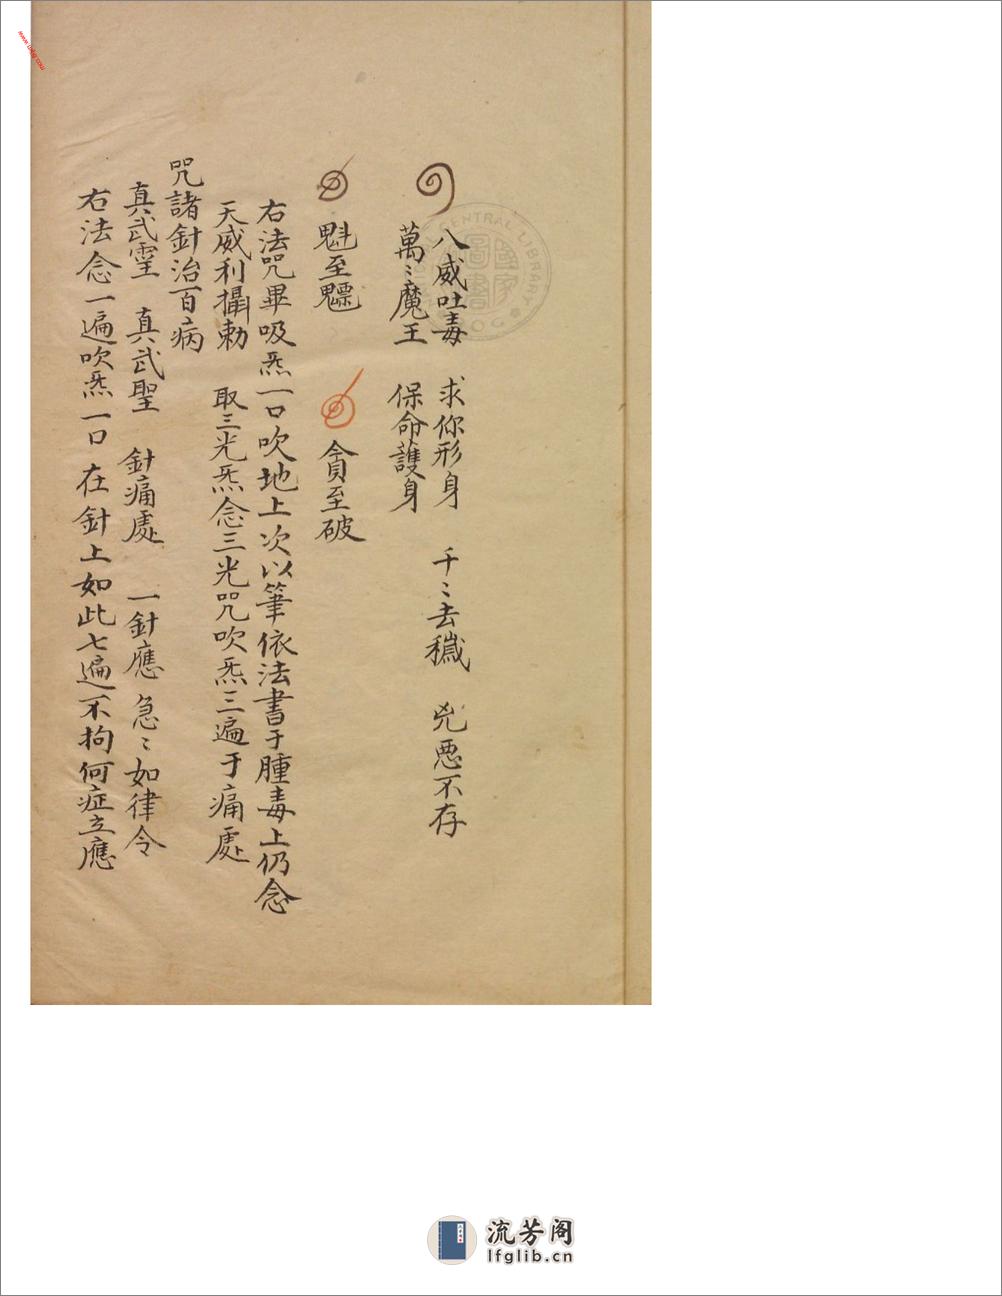 八威吐毒 求你形身 千〻去穢 兇惡不存
萬〻魔王 保命護身
魁至魒 貪至破
右法咒畢吸炁一口吹地上次以筆依法書于腫毒上仍念
天威利攝勅 取三光炁念三光咒吹炁三遍于痛處
咒諸針治百病
真武靈 真武聖 針痛處 一針應 急〻如律令
右法念一遍吹炁一口在針上如此七遍不拘何症立應
CENTRAL LIBRARY
流芳阁
lfglib.cn